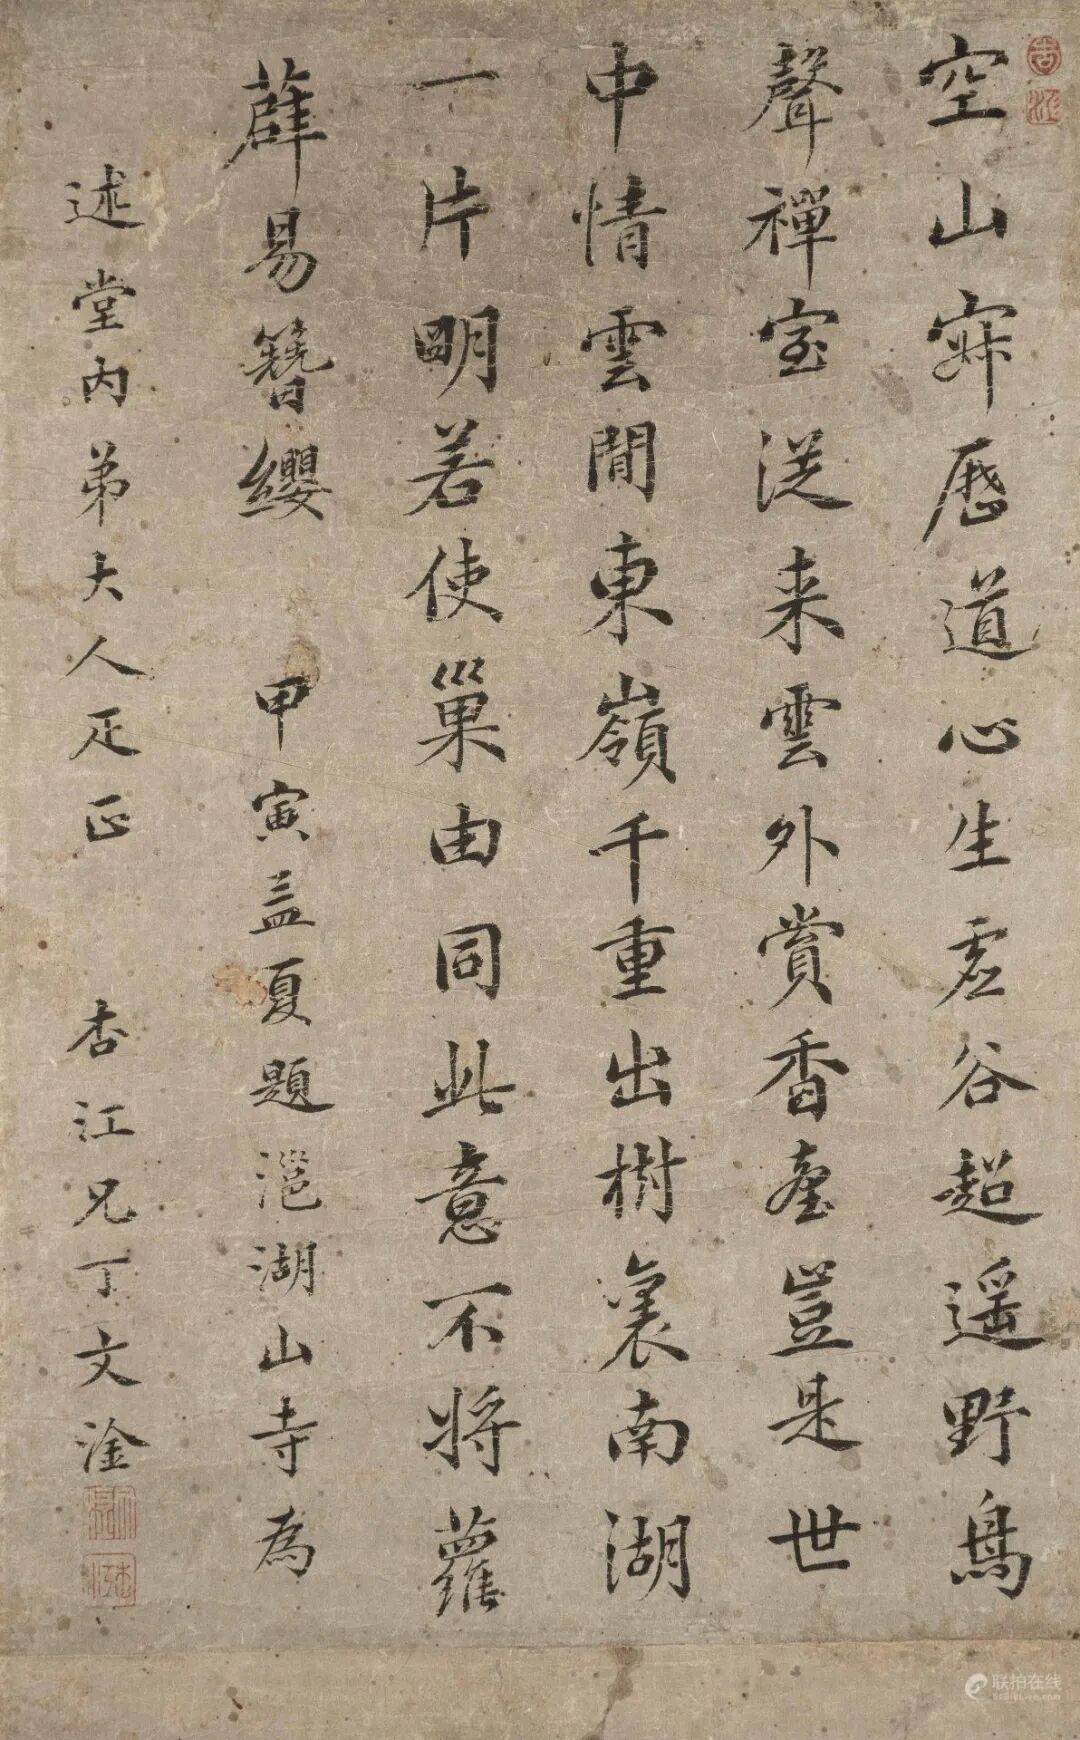 空山寂歷道心生虛谷超遥野鳥
聲禪室從来雲外賞香臺豈是世
中情雲間東嶺千重出樹裏南湖
一片明若使巢由同此意不將蘿
薜易簪纓 甲寅孟夏題滬湖山寺為
述堂内弟大人疋正 杏江兄丁文淦
联拍在线